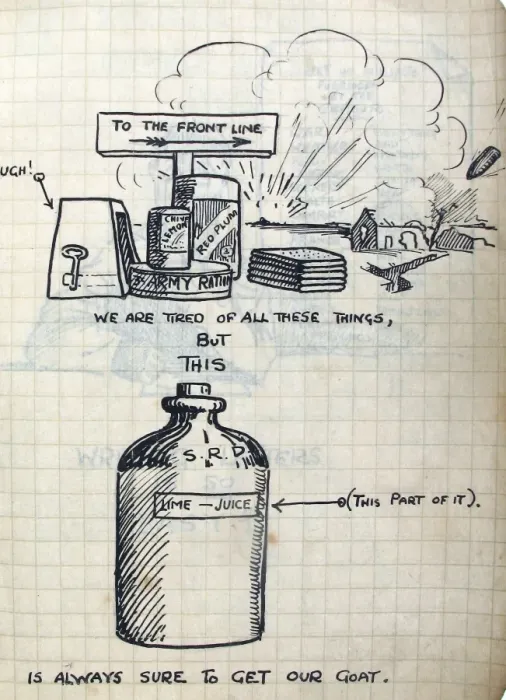 TO THE FRONT LINE
UGH!
LEMON
RED PLUM
ARMY RATION
WE ARE TIRED OF ALL THESE THINGS,
BUT
THIS
S.R.D.
LIME — JUICE
(THIS PART OF IT).
IS ALWAYS SURE TO GET OUR GOAT.